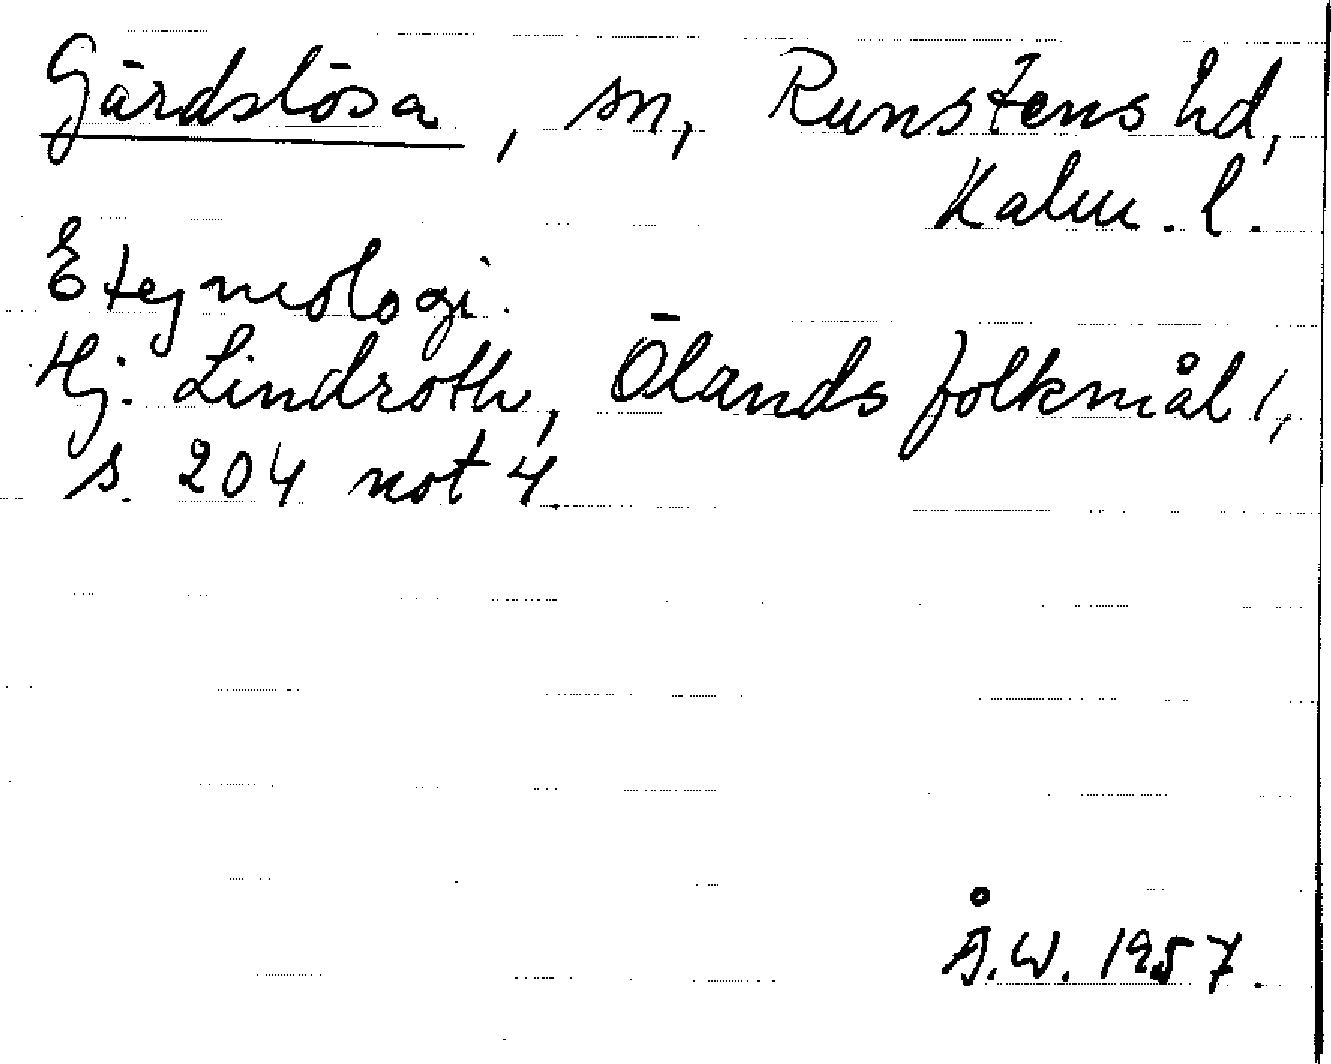 Gärdslösa, sn, Runstens hd,
Kalm. l.
Etymologi.
Hj. Lindroth, Ölands folkmål 1,
s. 204 not 4.
Å.W. 1957.